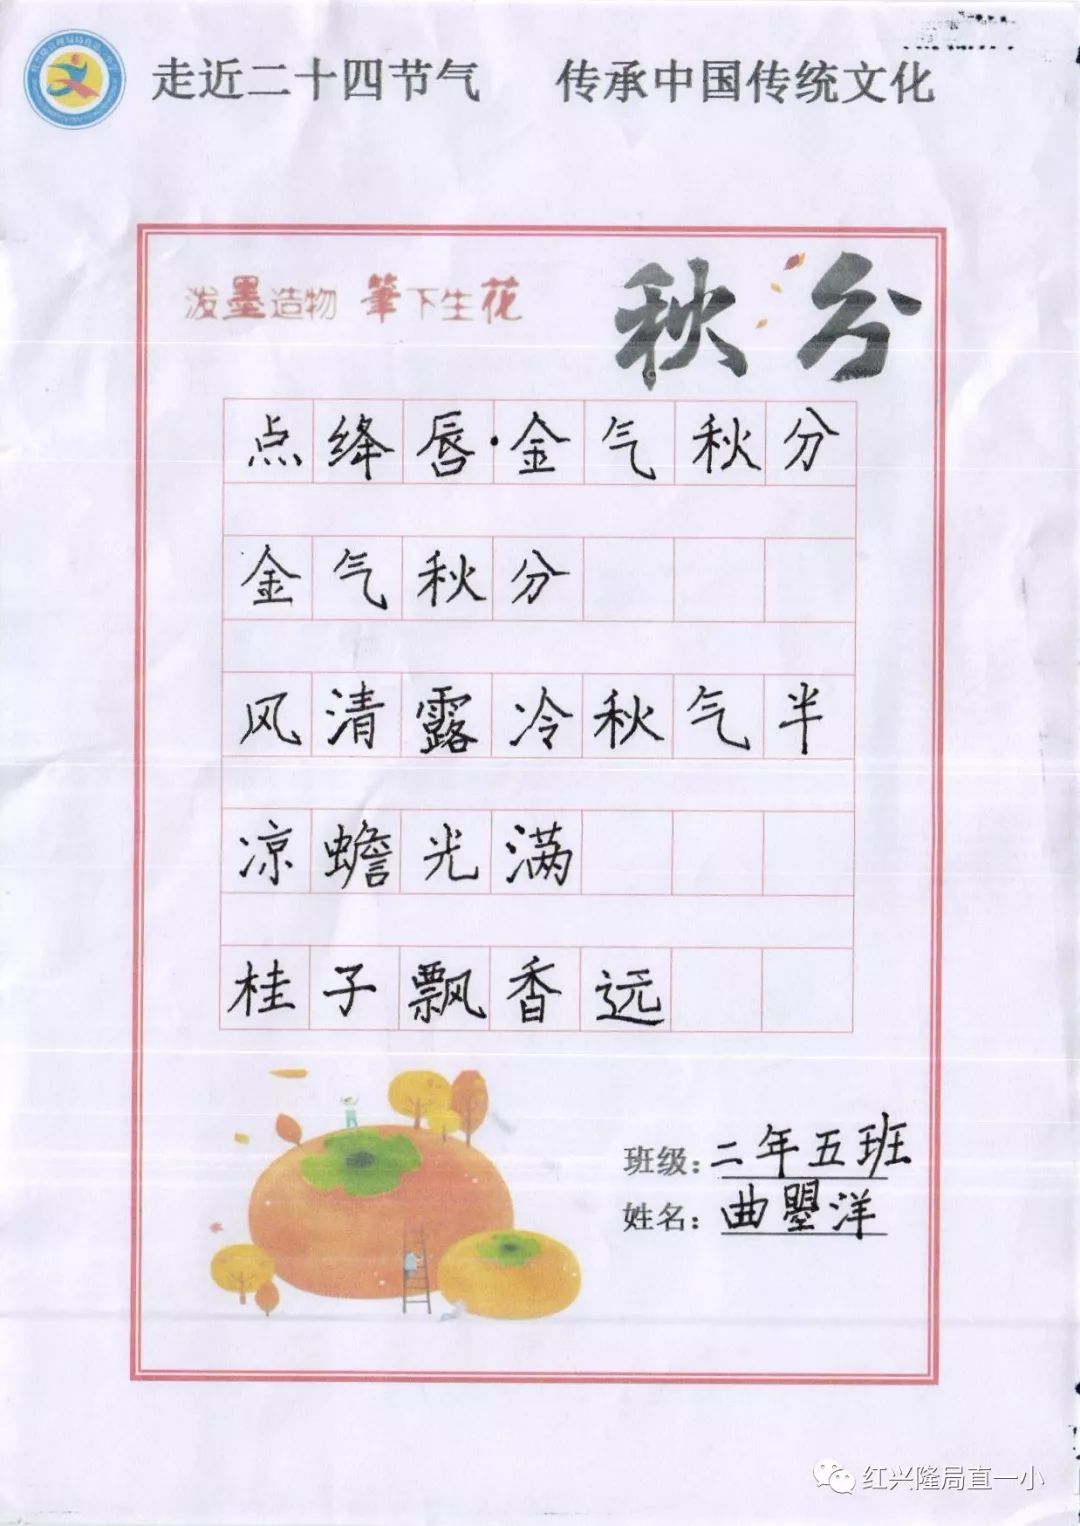 走近二十四节气 传承中国传统文化
泼墨造物 筆下生花
秋分
点绛唇·金气秋分
金气秋分
风清露冷秋气半
凉蟾光满
桂子飘香远
班级:二年五班
姓名:曲曌洋
红兴隆局直一小